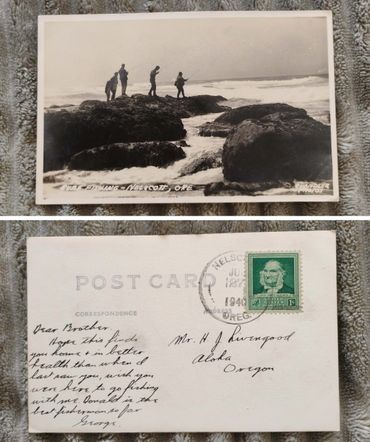 SURF FISHING - NELSCOTT, ORE
POST CARD
CORRESPONDENCE
NELSCO
1940
OREG.
1¢
Dear Brother
Hope this finds
you home & in better
health than when I
last saw you, wish you
were here to go fishing
with me. Donald is the
best fisherman so far
George
Mr. H J Livengood
Aloha
Oregon